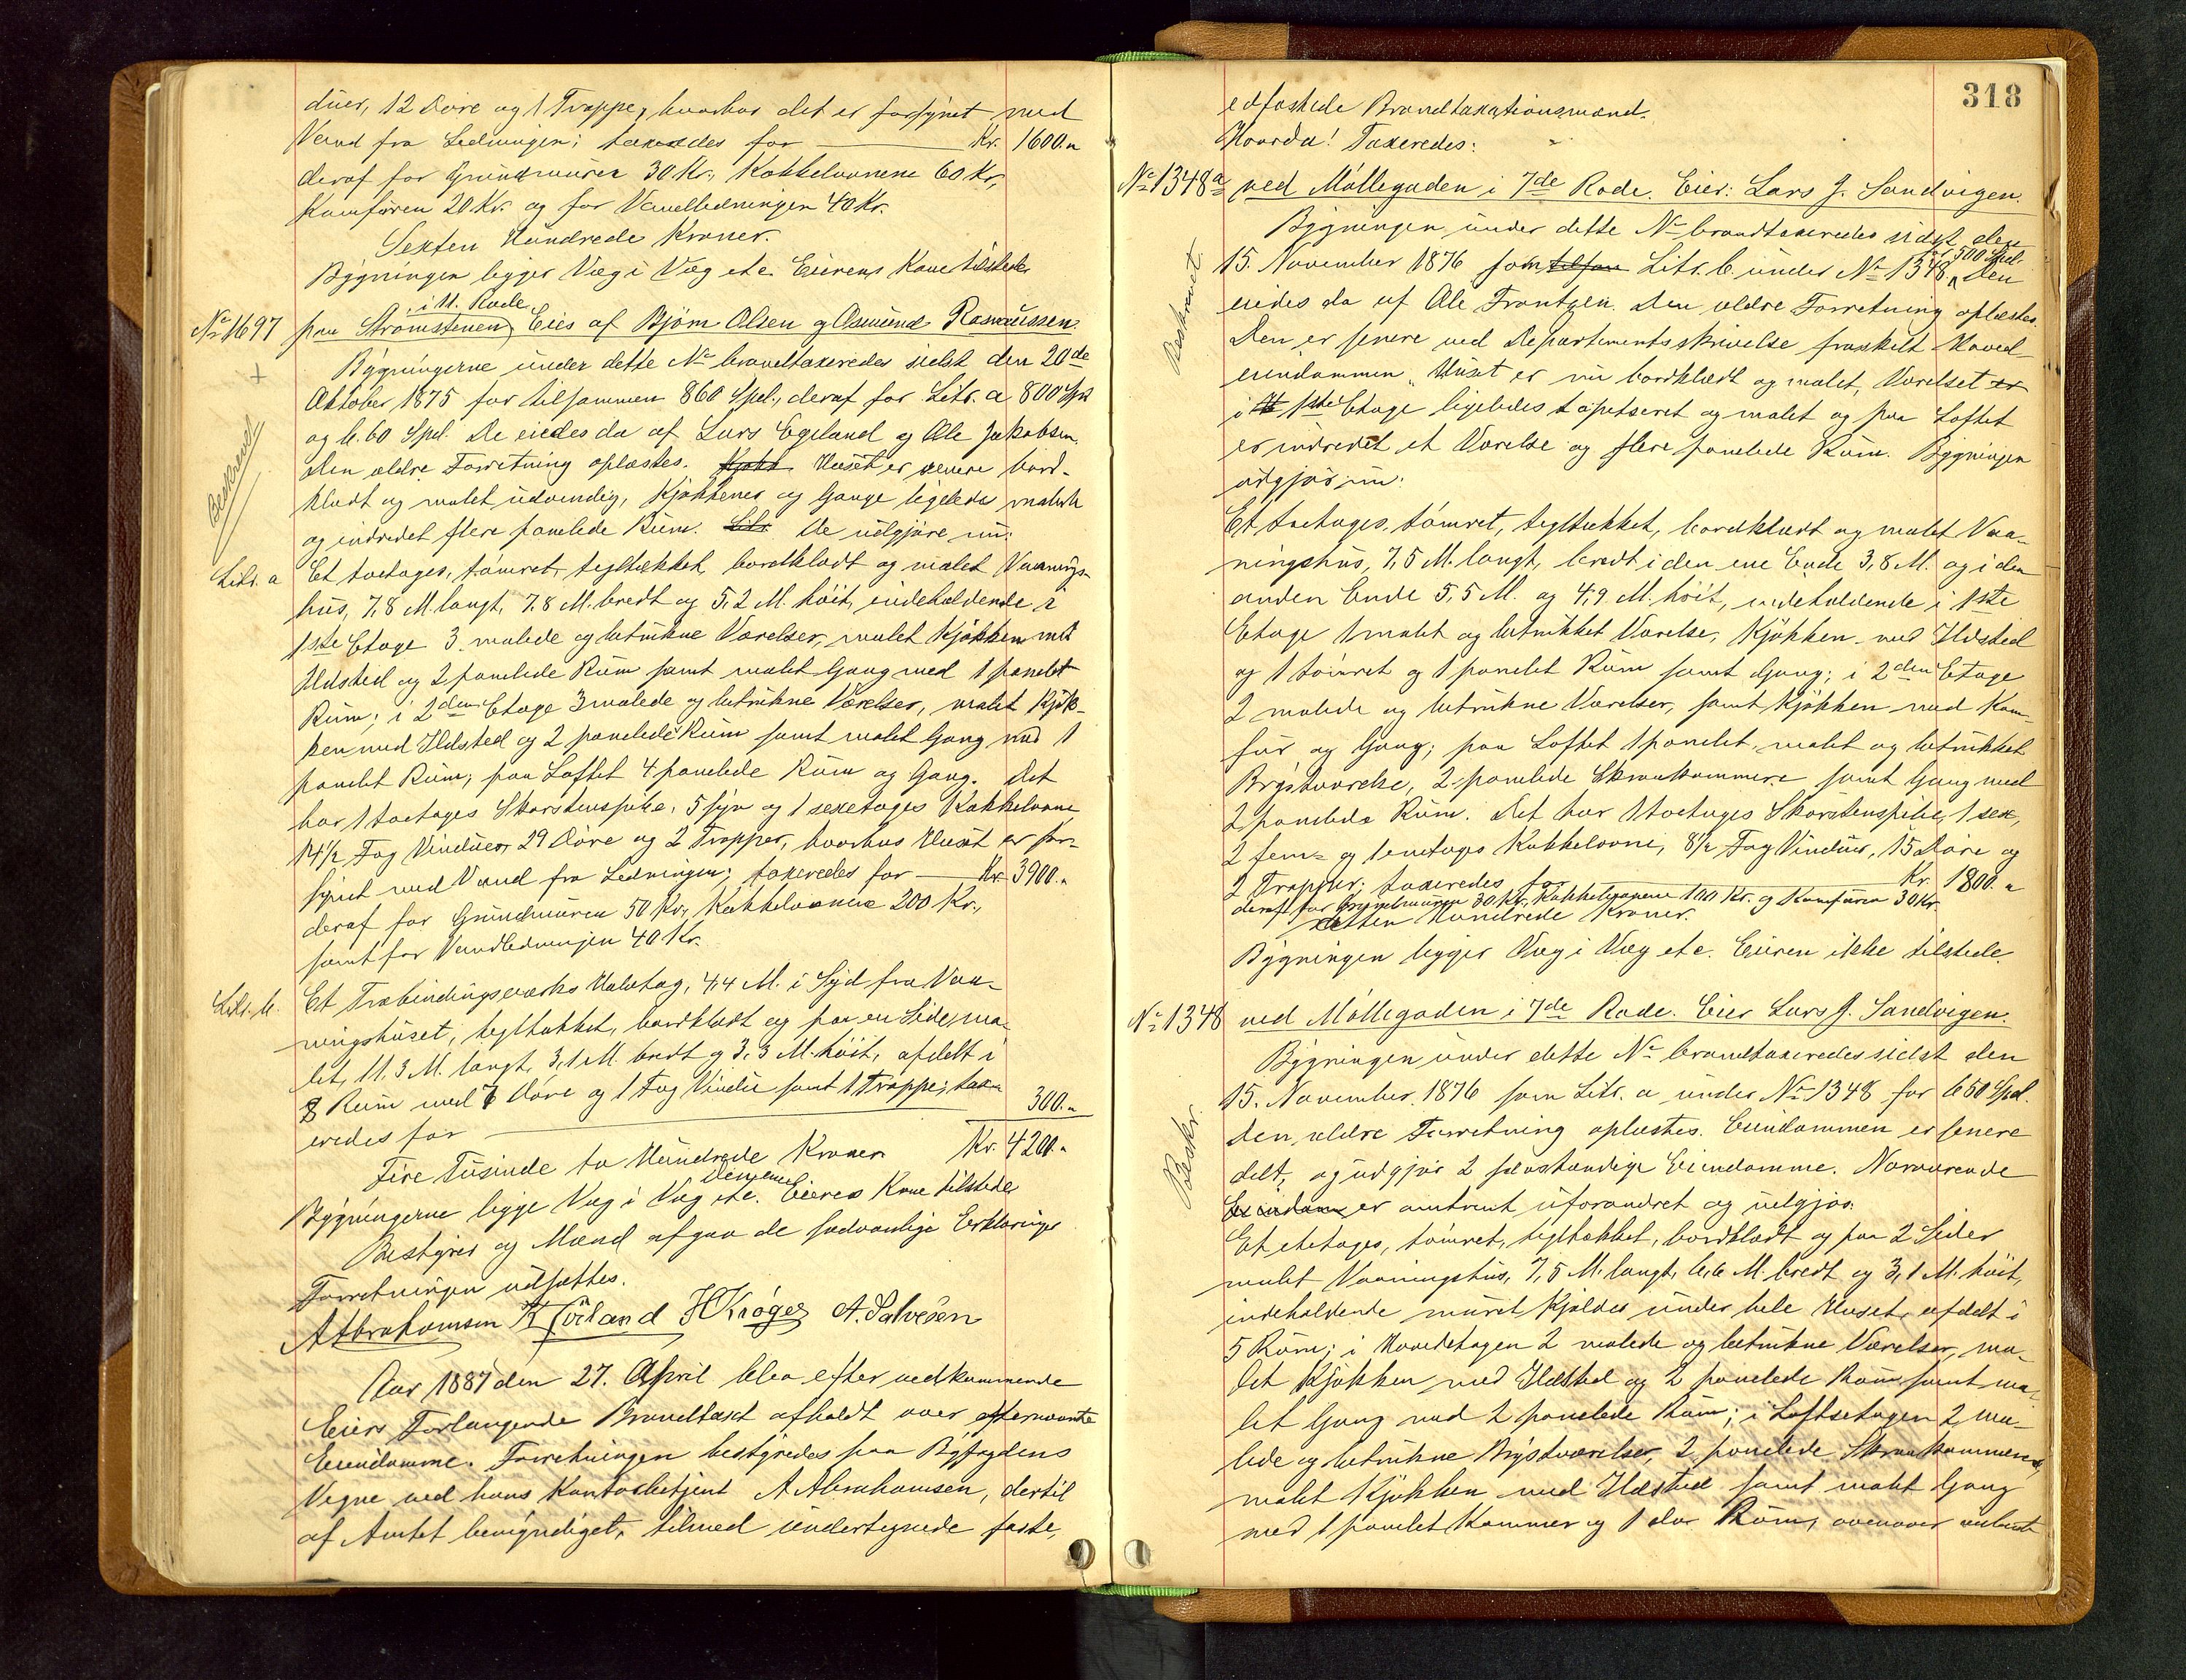 duer, 12 Döre og 1 Trappe, hvorhos det er forsynet med
Vand fra Ledningen; taxeredes for Kr. 1600.„
deraf for Grundmuren 30 Kr., Kakkelovnene 60 Kr.,
Komfüren 20 Kr. og for Vandledningen 40 Kr.
Sexten Hundrede Kroner.
Bygningen ligger Væg i Væg etc. Eierens Kone tilstede
i 11. Rode
No 1697 paa Strömstenen, Eies af Bjørn Olsen og Osmund Rasmussen.
Bygningerne under dette No brandtaxeredes sidst den 20de
Oktober 1875 for tilsammen 860 Spd., deraf for Litr. a 800 Spd
og b. 60 Spd. De eiedes da af Lars Egeland og Ole Jakobsen.
Den ældre Forretning oplæstes. Huset er senere bord-
Beskrevet
klædt og malet udvendig, Kjøkkener og Gange ligeledes malede
og indredet flere panelede Rum. De udgjøre nu:
Litr. a Et toetages, tömret, tegltækket, bordklædt og malet Vaanings-
hus, 7,8 M. langt, 7,8 M. bredt og 5,2 M. höit, indeholdende i
1ste Etage 3 malede og betrukne Værelser, malet Kjøkken med
Ildsted og 2 panelede Rum samt malet Gang med 1 panelet
Rum; i 2den Etage 3 malede og betrukne Værelser, malet Kjøk-
ken med Ildsted og 2 panelede Rum samt malet Gang med 1
panelet Rum; paa Loftet 4 panelede Rum og Gang. Det
har 1 toetages Skorstenspibe, 5 syv og 1 sexetages Kakkelovne
14½ Fag Vinduer, 29 Döre og 2 Trapper, hvorhos Huset er for-
synet med Vand fra Ledningen; taxeredes for Kr. 3900.„
deraf for Grundmuren 50 Kr., Kakkelovnene 200 Kr.,
samt for Vandledningen 40 Kr.
Litr. b. Et Træbindingsværks Halvtag, 4,4 M. i Syd fra Vaa-
ningshuset, tegltækket, bordklædt og paa en Side ma-
let, 11,3 M. langt, 3,1 M. bredt og 3,3 M. höit, afdelt i
8 Rum med 7 Döre og 1 Fag Vindu samt 1 Trappe; tax-
eredes for 300.„
Fire Tusinde to Hundrede Kroner Kr. 4200.„
Den ene
Bygningerne ligge Væg i Væg etc. Eieres Kone tilstede
Bestyrer og Mænd afgav de sædvanlige Erklæringer
Forretningen udsattes.
A Abrahamsen H Kröger A. Salvesen
Aar 1887 den 27. April blev efter vedkommende
Eiers Forlangende Brandtaxt afholdt over efternævnte
Eiendomme. Forretningen bestyredes paa Byfogdens
Vegne ved hans Kontorbetjent A Abrahamsen, dertil
af Amtet bemyndiget, tilmed undertegnede faste,
318
edfæstede Brandtaxationsmænd.
Hvorda! Taxeredes:
No 1348a ved Möllegaden i 7de Rode. Eier: Lars J. Sandvigen.
Bygningen under dette No brandtaxeredes sidst den
500 Spd.
15. November 1876 som Litr. b. under No 1348. Den
Beskrevet
eiedes da af Ole Frantzen. Den ældre Forretning oplæstes.
Den er senere ved Departementsskrivelse fraskilt Hoved-
eiendommen. Huset er nu bordklædt og malet, Værelset
i 1ste Etage ligeledes tapetseret og malet og paa Loftet
er indredet et Værelse og flere panelede Rum. Bygningen
udgjör nu:
Et toetages, tömret, tegltækket, bordklædt og malet Vaa-
ningshus, 7,5 M. langt, bredt i den ene Ende 3,8 M. og i den
anden Ende 5,5 M. og 4,9 M. höit, indeholdende i 1ste
Etage 1 malet og betrukket Værelse, Kjøkken med Ildsted
og 1 tömret og 1 panelet Rum samt Gang; i 2den Etage
2 malede og betrukne Værelser, samt Kjøkken med Kom-
für og Gang; paa Loftet 1 panelet, malet og betrukket
Brystværelse, 2 panelede Skraakammere samt Gang med
2 panelede Rum. Det har 1 toetages Skorstenspibe, 1 sex,
2 fem- og 1 enetages Kakkelovne, 8½ Fag Vinduer, 15 Döre og
2 Trapper; taxeredes for Kr. 1800.„
deraf for Grundmuren 30 Kr., Kakkelovnene 100 Kr. og Komfüren 30 Kr.
Atten Hundrede Kroner.
Bygningen ligger Væg i Væg etc. Eieren ikke tilstede.
No 1348 ved Möllegaden i 7de Rode. Eier Lars J. Sandvigen.
Bygningen under dette No brandtaxeredes sidst den
15. November 1876 som Litr. a under No 1348 for 650 Spd.
Den ældre Forretning oplæstes. Eiendommen er senere
Beskr.
delt, og udgjør 2 selvstændige Eiendomme. Nærværende
Eiendom er omtrent uforandret og udgjør:
Et etetages, tömret, tegltækket, bordklædt og paa 2 Sider
malet Vaaningshus, 7,5 M. langt, 6,6 M. bredt og 3,1 M. höit,
indeholdende muret Kjælder under hele Huset, afdelt i
5 Rum; i Hovedetagen 2 malede og betrukne Værelser, ma-
let Kjøkken med Ildsted og 2 panelede Rum samt ma-
let Gang med 2 panelede Rum; i Loftsetagen 2 ma-
lede og betrukne Brystværelser, 2 panelede Skraakammere,
malet Kjøkken med Ildsted samt malet Gang
med 1 panelet Kammer og 1 do. Rum, ovenover